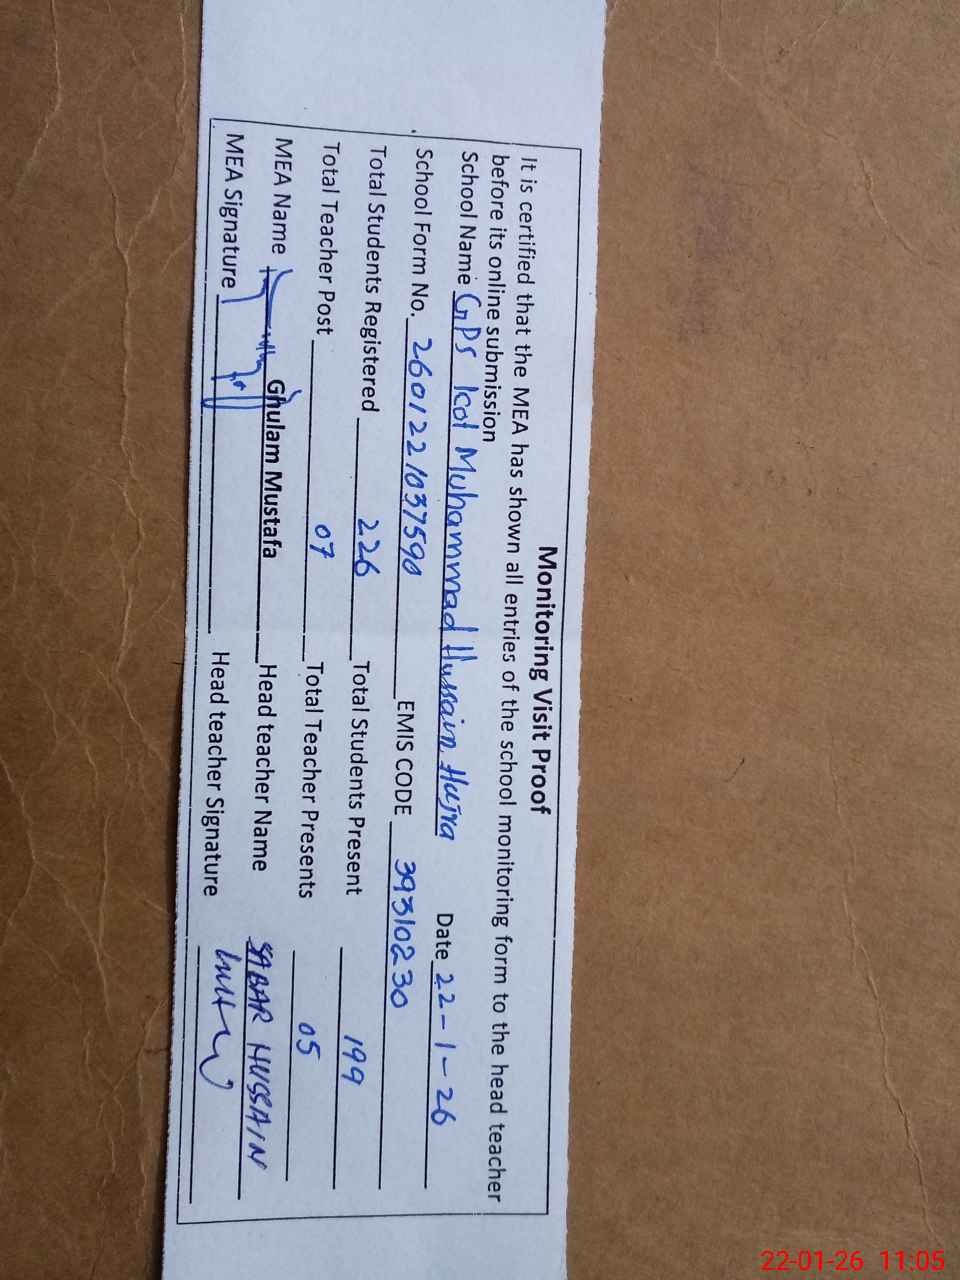 Monitoring Visit Proof
It is certified that the MEA has shown all entries of the school monitoring form to the head teacher
before its online submission
School Name GPS Kot Muhammad Hussain Hujra Date 22-1-26
School Form No. 2601221037590 EMIS CODE 39310230
Total Students Registered 226 Total Students Present 199
Total Teacher Post 07 Total Teacher Presents 05
MEA Name Ghulam Mustafa Head teacher Name SABAR HUSSAIN
MEA Signature Head teacher Signature
22-01-26 11:05